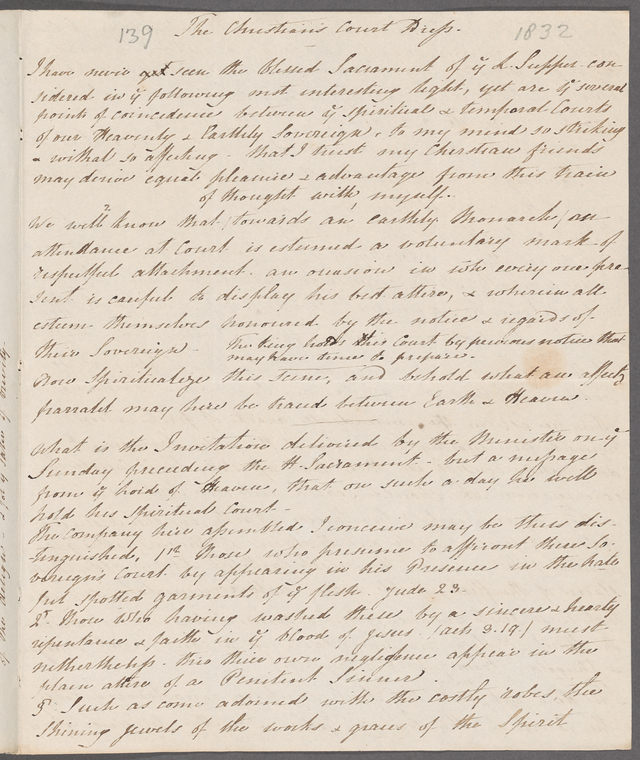 139 The Christians Court Dress. 1832
I have never yet seen the Blessed Sacrament of ye L. Supper con-
sidered in ye following most interesting light, yet are ye several
points of coincidence between ye spiritual & temporal Courts
of our Heavenly & Earthly Sovereign, to my mind so striking
& withal so affecting - that I trust my Christian friends
may derive equal pleasure & advantage from this train
of thought with, myself.
We well know that (towards an earthly Monarch) an
attendance at Court is esteemed a voluntary mark of
respectful attachment. an occasion in wh every one pre-
sent is careful to display his best attire, & wherein all
esteem themselves honoured by the notice & regards of
their Sovereign - The King holds this Court by previous notice that
may have time to prepare.
Now Spiritualize this scene, and behold what an affectg
parralel may here be traced between Earth & Heaven.
What is the Invitation delivered by the Minister on ye
Sunday preceeding the H. Sacrament - but a message
from ye Lord of Heaven, that on such a day he will
hold his Spiritual Court -
The company here assembled I conceive may be thus dis-
-tinguished, 1st Those who presume to affront these So-
vereign's Court by appearing in his Presence in the hate
ful spotted garments of ye flesh. Jude 23.
2d Those who having washed these by a sincere & hearty
repentance & faith in ye blood of Jesus (acts 3.19) must
netherthelss. thro their own negligence appear in the
plain attire of a Penitent Sinner.
3d Such as come adorned with the costly robes the
shining jewels of the works & graces of the Spirit